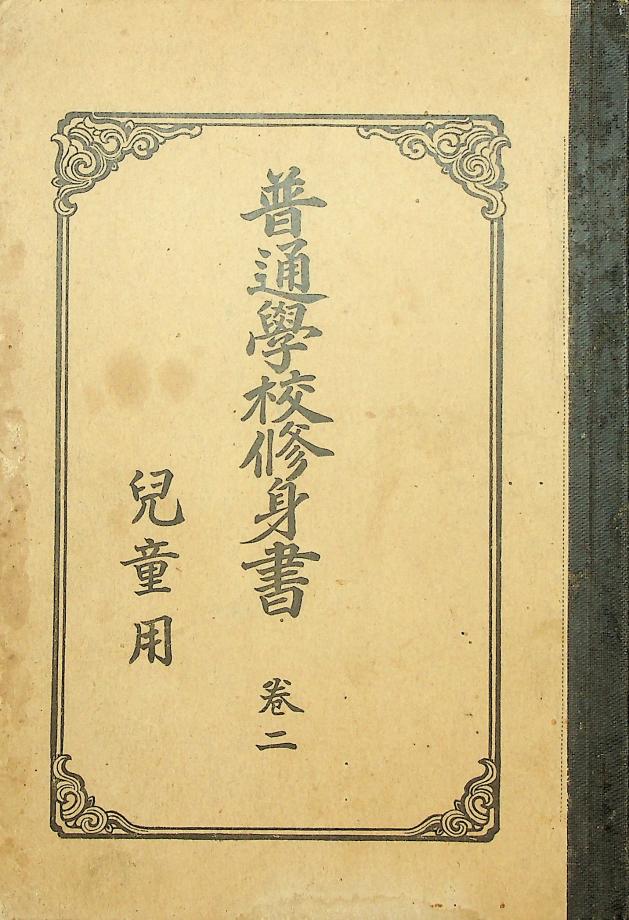 普通學校修身書 卷二
兒童用